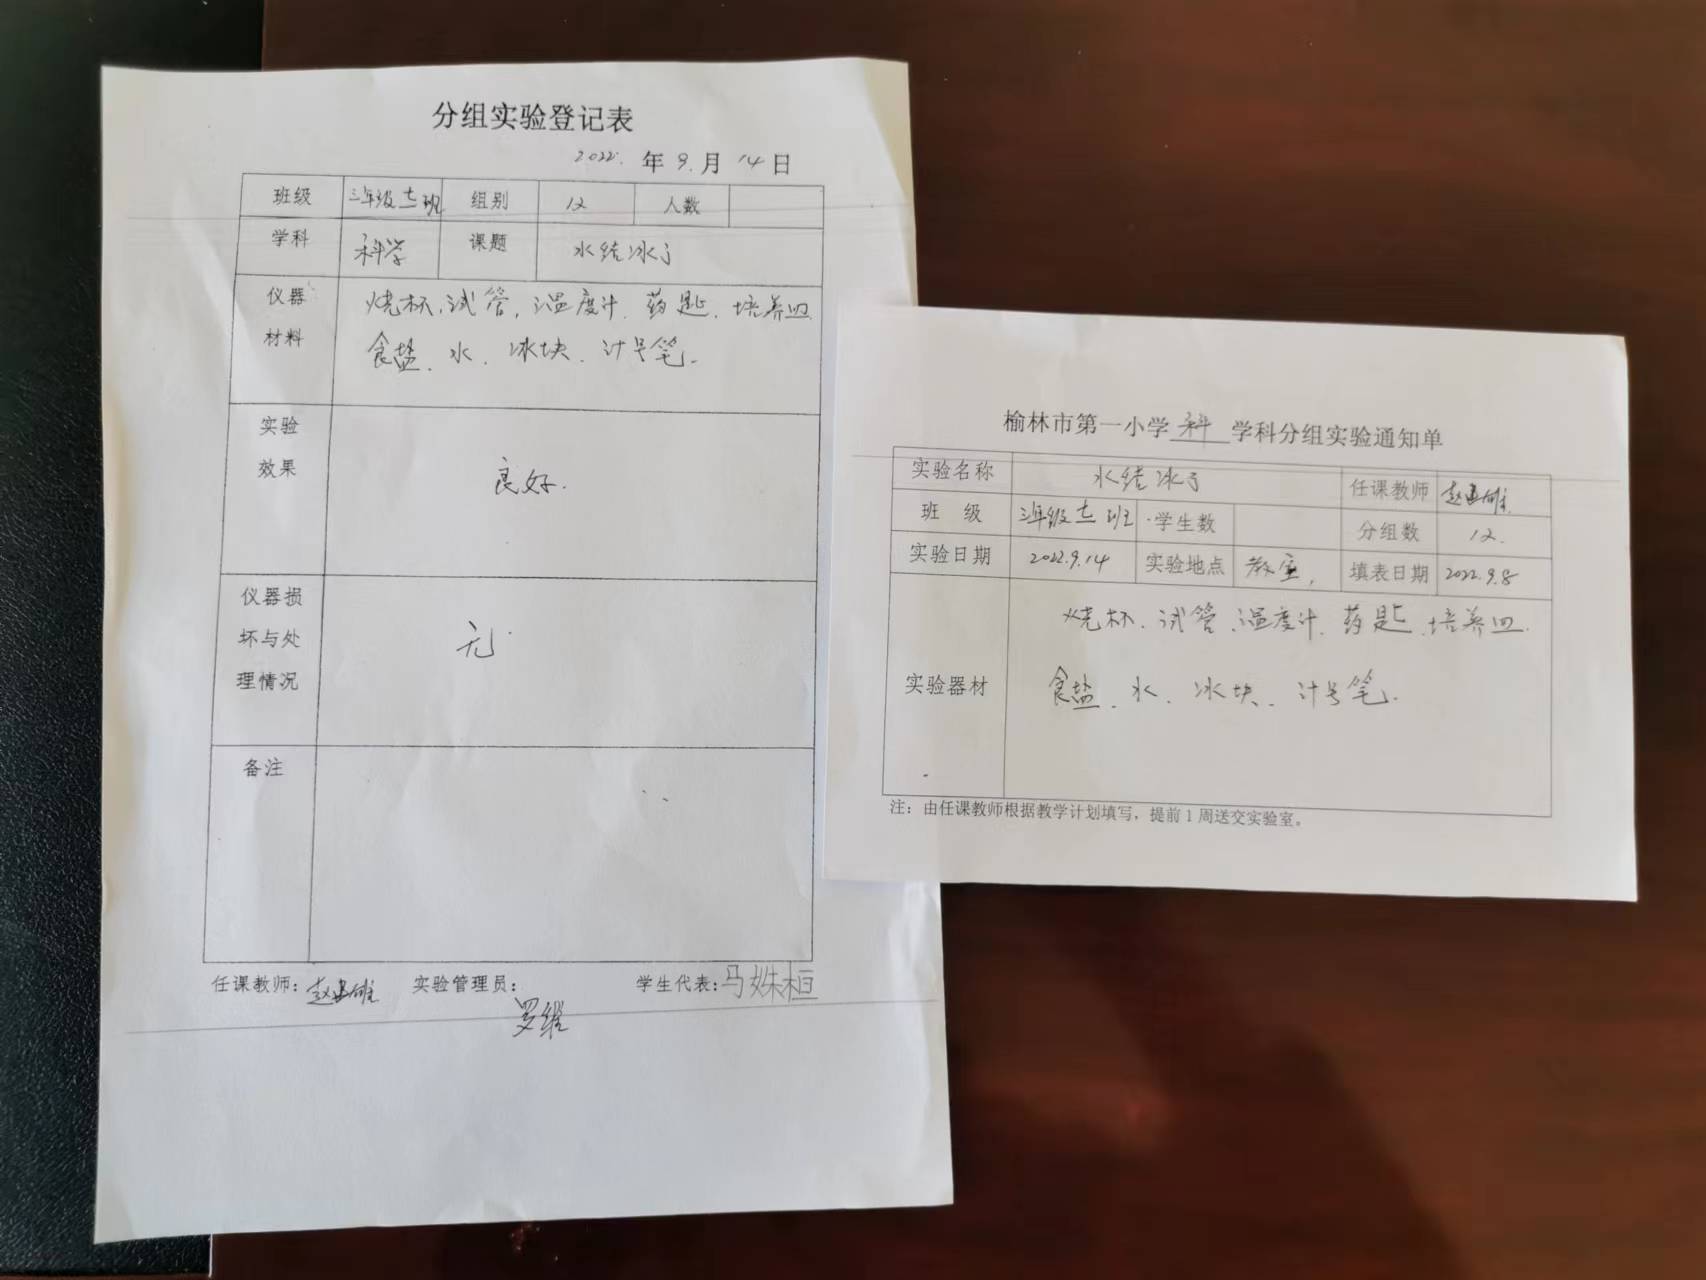 分组实验登记表
2022. 年 9. 月 14 日
班级 三年级七班 组别 12 人数
学科 科学 课题 水结冰了
仪器 烧杯、试管、温度计、药匙、培养皿
材料 食盐、水、冰块、计号笔.
实验
效果
良好.
仪器损
坏与处
理情况
无.
备注
任课教师: 实验管理员: 学生代表:马姝桓
罗维
榆林市第一小学 科 学科分组实验通知单
实验名称 水结冰了 任课教师
班 级 三年级七班 学生数 分组数 12.
实验日期 2022.9.14 实验地点 教室, 填表日期 2022.9.8
烧杯、试管、温度计、药匙、培养皿.
实验器材 食盐、水、冰块、计号笔.
注: 由任课教师根据教学计划填写, 提前 1 周送交实验室。